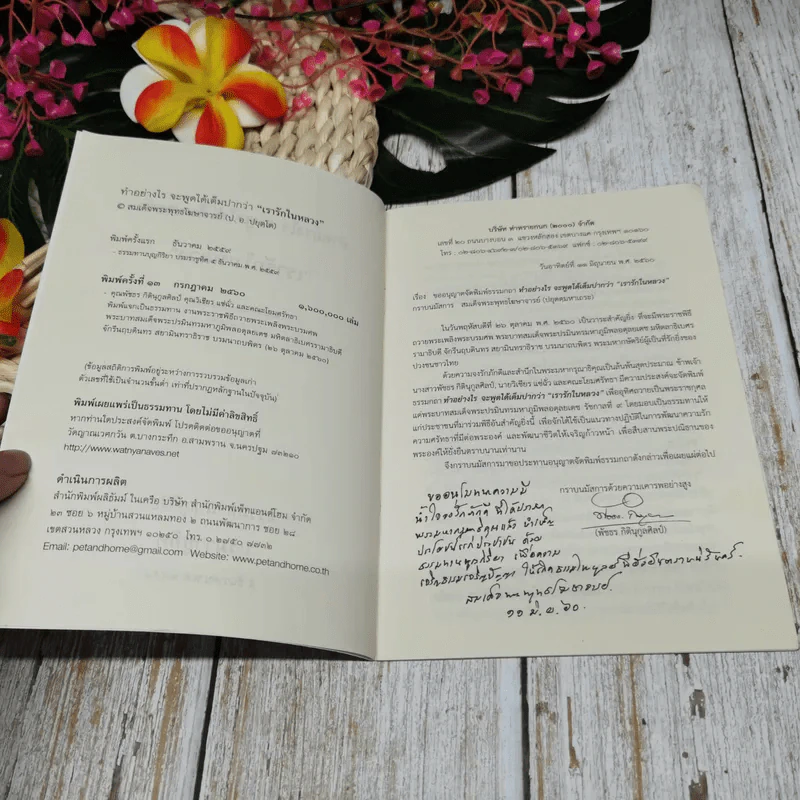 ทำอย่างไร จะพูดได้เต็มปากว่า “เรารักในหลวง”
© สมเด็จพระพุทธโฆษาจารย์ (ป. อ. ปยุตฺโต)
พิมพ์ครั้งแรก ธันวาคม ๒๕๕๙
- ธรรมทานบุญกิริยา ปรมราชูทิศ ๕ ธันวาคม พ.ศ. ๒๕๕๙
พิมพ์ครั้งที่ ๑๓ กรกฎาคม ๒๕๖๐ ๑,๖๐๐,๐๐๐ เล่ม
- คุณพัชธร กิตินุกูลศิลป์ คุณวิเชียร แซ่ฉั่ว และคณะโยมศรัทธา
พิมพ์แจกเป็นธรรมทาน งานพระราชพิธีถวายพระเพลิงพระบรมศพ
พระบาทสมเด็จพระปรมินทรมหาภูมิพลอดุลยเดช มหิตลาธิเบศรรามาธิบดี
จักรีนฤบดินทร สยามินทราธิราช บรมนาถบพิตร (๒๖ ตุลาคม ๒๕๖๐)
(ข้อมูลสถิติการพิมพ์อยู่ระหว่างการรวบรวมข้อมูลเก่า
ตัวเลขที่ใช้เป็นจำนวนขั้นต่ำ เท่าที่ปรากฏหลักฐานในปัจจุบัน)
พิมพ์เผยแพร่เป็นธรรมทาน โดยไม่มีค่าลิขสิทธิ์
หากท่านใดประสงค์จัดพิมพ์ โปรดติดต่อขออนุญาตที่
วัดญาณเวศกวัน ต.บางกระทึก อ.สามพราน จ.นครปฐม ๗๓๒๑๐
http://www.watnyanaves.net
ดำเนินการผลิต
สำนักพิมพ์ผลิธัมม์ ในเครือ บริษัท สำนักพิมพ์เพ็ทแอนด์โฮม จำกัด
๒๓ ซอย ๖ หมู่บ้านสวนแหลมทอง ๒ ถนนพัฒนาการ ซอย ๒๘
เขตสวนหลวง กรุงเทพฯ ๑๐๒๕๐ โทร. ๐ ๒๗๕๐ ๗๗๓๒
Email: petandhome@gmail.com Website: www.petandhome.co.th
บริษัท ท่าทรายกนก (๒๐๑๐) จำกัด
เลขที่ ๒๐ ถนนบางบอน ๓ แขวงหลักสอง เขตบางแค กรุงเทพฯ ๑๐๑๖๐
วันอาทิตย์ที่ ๑๑ มิถุนายน พ.ศ. ๒๕๖๐
เรื่อง ขออนุญาตจัดพิมพ์ธรรมกถา ทำอย่างไร จะพูดได้เต็มปากว่า “เรารักในหลวง”
กราบนมัสการ สมเด็จพระพุทธโฆษาจารย์ (ปยุตฺตมหาเถระ)
ในวันพฤหัสบดีที่ ๒๖ ตุลาคม พ.ศ. ๒๕๖๐ เป็นวาระสำคัญยิ่ง ที่จะมีพระราชพิธี
ถวายพระเพลิงพระบรมศพ พระบาทสมเด็จพระปรมินทรมหาภูมิพลอดุลยเดช มหิตลาธิเบศร
รามาธิบดี จักรีนฤบดินทร สยามินทราธิราช บรมนาถบพิตร พระมหากษัตริย์ผู้เป็นที่รักยิ่งของ
ปวงชนชาวไทย
ด้วยความจงรักภักดีและสำนึกในพระมหากรุณาธิคุณเป็นล้นพ้นสุดประมาณ ข้าพเจ้า
นางสาวพัชธร กิตินุกูลศิลป์, นายวิเชียร แซ่ฉั่ว และคณะโยมศรัทธา มีความประสงค์จะจัดพิมพ์
ธรรมกถา ทำอย่างไร จะพูดได้เต็มปากว่า “เรารักในหลวง” เพื่ออุทิศถวายเป็นพระราชกุศล
แด่พระบาทสมเด็จพระปรมินทรมหาภูมิพลอดุลยเดช รัชกาลที่ ๙ โดยมอบเป็นธรรมทานให้
แก่ประชาชนที่มาร่วมพิธีอันสำคัญยิ่งนี้ เพื่อจักได้ใช้เป็นแนวทางปฏิบัติในการพัฒนาความรัก
ความศรัทธาที่มีต่อพระองค์ และพัฒนาชีวิตให้เจริญก้าวหน้า เพื่อสืบสานพระปณิธานของ
พระองค์ให้ยั่งยืนตราบนานเท่านาน
จึงกราบนมัสการมาขอประทานอนุญาตจัดพิมพ์ธรรมกถาดังกล่าวเพื่อเผยแผ่ต่อไป
กราบนมัสการด้วยความเคารพอย่างสูง
(พัชธร กิตินุกูลศิลป์)
ขออนุโมทนาความมี
น้ำใจจงรักภักดี
ประโยชน์แก่ประชาชน ด้วย
สมเด็จพระพุทธโฆษาจารย์
๑๑ มิ.ย. ๖๐